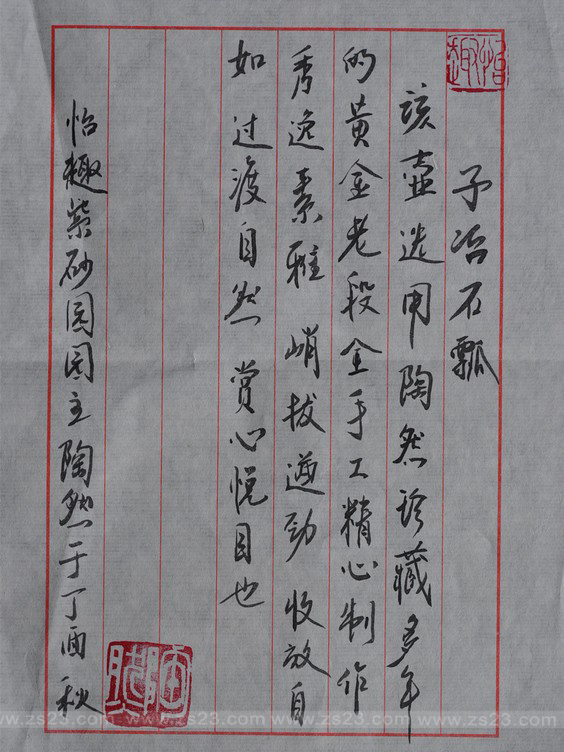 怡趣
子冶石瓢
该壶选用陶然珍藏多年
的黄金老段全手工精心制作
秀逸素雅 峭拔遒劲 收放自
如 过渡自然 赏心悦目也
怡趣紫砂园园主陶然于丁酉秋
陶然
www.zs23.com www.zs23.com www.zs23.com